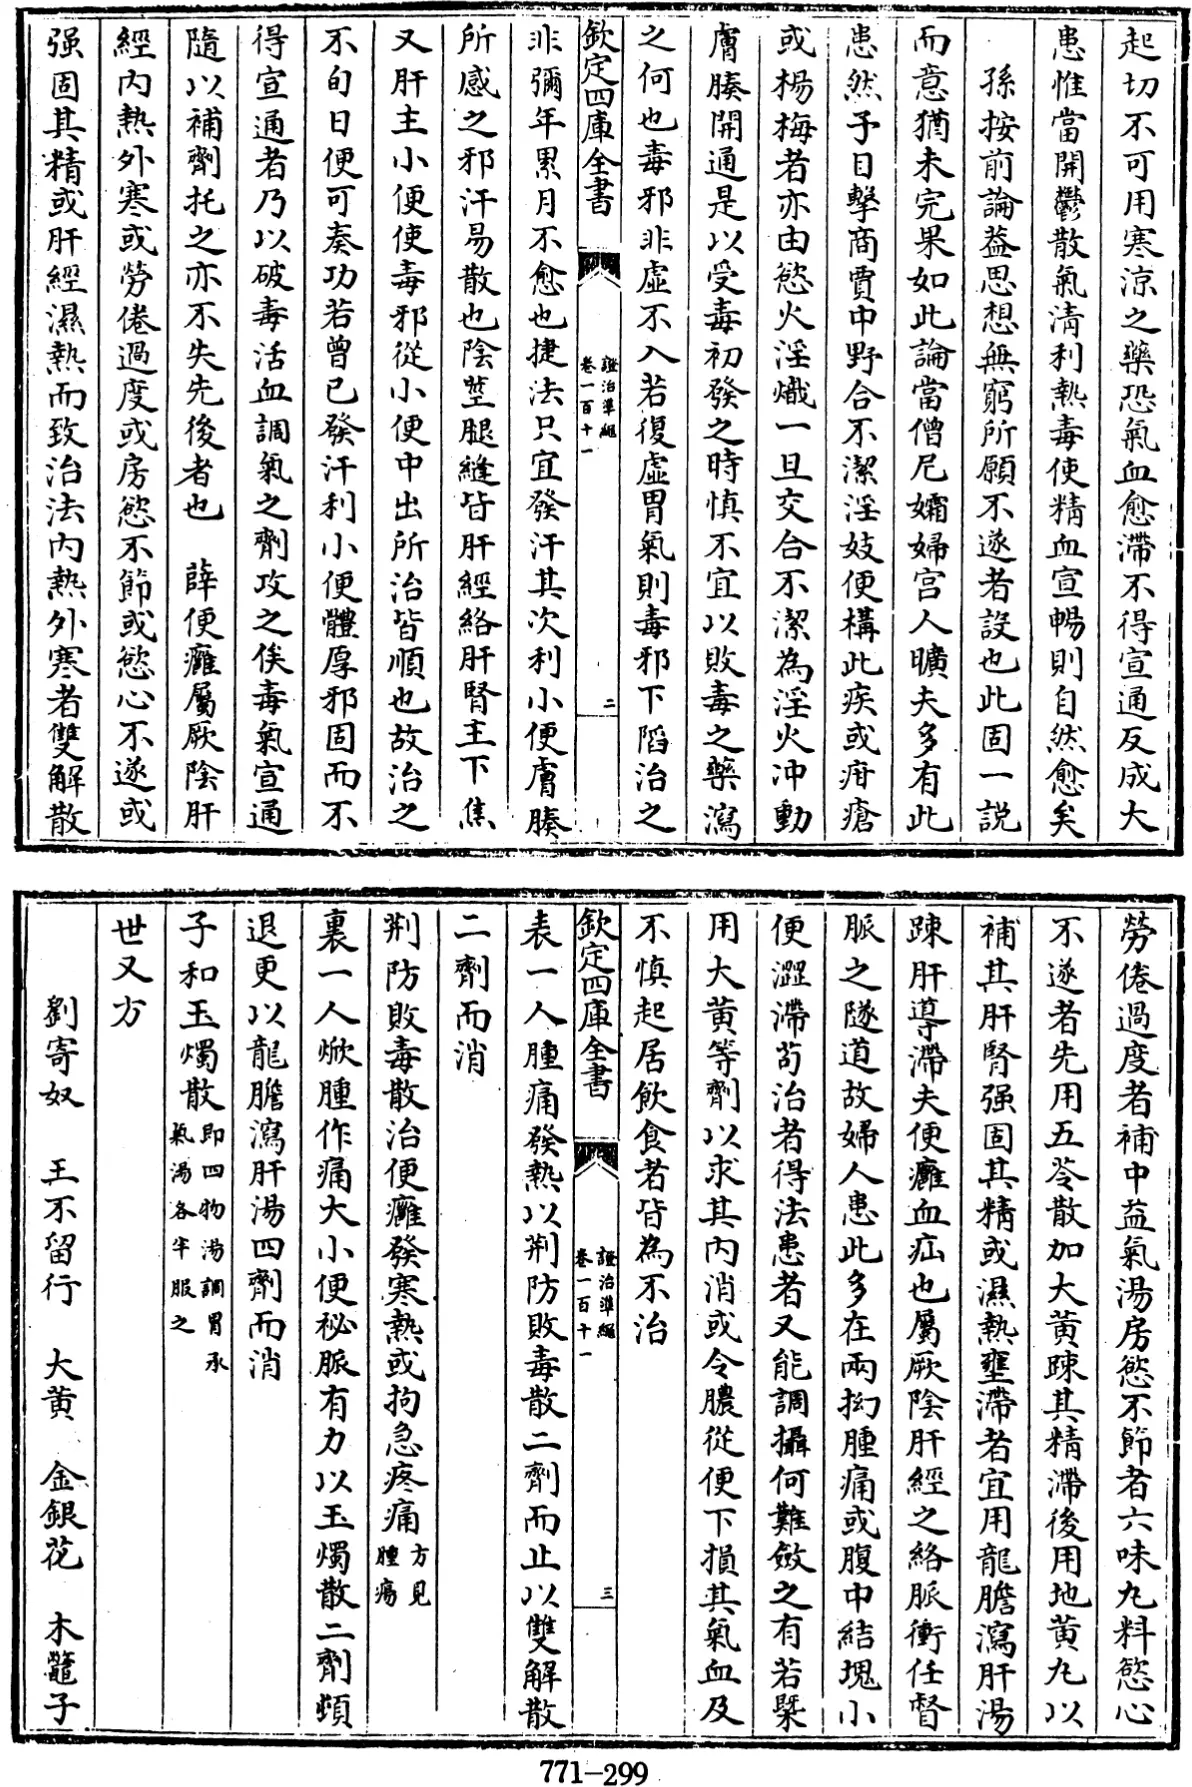 起切不可用寒涼之藥恐氣血愈滯不得宣通反成大
患惟當開鬱散氣清利熱毒使精血宣暢則自然愈矣
孫按前論蓋思想無窮所願不遂者設也此固一説
而意猶未完果如此論當僧尼孀婦宫人曠夫多有此
患然予目擊商賈中野合不潔淫妓便構此疾或疳瘡
或楊梅者亦由慾火淫熾一旦交合不潔為淫火沖動
膚腠開通是以受毒初發之時慎不宜以敗毒之藥瀉
之何也毒邪非虛不入若復虛胃氣則毒邪下䧟治之
欽定四庫全書
證治準繩
卷一百十一
二
非彌年累月不愈也捷法只宜發汗其次利小便膚腠
所感之邪汗易散也陰莖腿縫皆肝經絡肝腎主下焦
又肝主小便使毒邪從小便中出所治皆順也故治之
不旬日便可奏功若曾已發汗利小便體厚邪固而不
得宣通者乃以破毒活血調氣之劑攻之俟毒氣宣通
隨以補劑托之亦不失先後者也　薛便癰屬厥陰肝
經内熱外寒或勞倦過度或房慾不節或慾心不遂或
强固其精或肝經濕熱而致治法内熱外寒者雙解散
勞倦過度者補中益氣湯房慾不節者六味丸料慾心
不遂者先用五苓散加大黄踈其精滯後用地黄丸以
補其肝腎强固其精或濕熱壅滯者宜用龍膽瀉肝湯
踈肝導滯夫便癰血疝也屬厥陰肝經之絡脈衝任督
脈之隧道故婦人患此多在兩拗腫痛或腹中結塊小
便澀滯苟治者得法患者又能調攝何難斂之有若槩
用大黄等劑以求其内消或令膿從便下損其氣血及
不慎起居飲食者皆為不治
欽定四庫全書
證治準繩
卷一百十一
三
表一人腫痛發熱以荆防敗毒散二劑而止以雙解散
二劑而消
荆防敗毒散治便癰發寒熱或拘急疼痛方見腫瘍
裏一人焮腫作痛大小便秘脈有力以玉燭散二劑頓
退更以龍膽瀉肝湯四劑而消
子和玉燭散即四物湯調胃承氣湯各半服之
世又方
劉寄奴　王不留行　大黄　金銀花　木鼈子
771—299